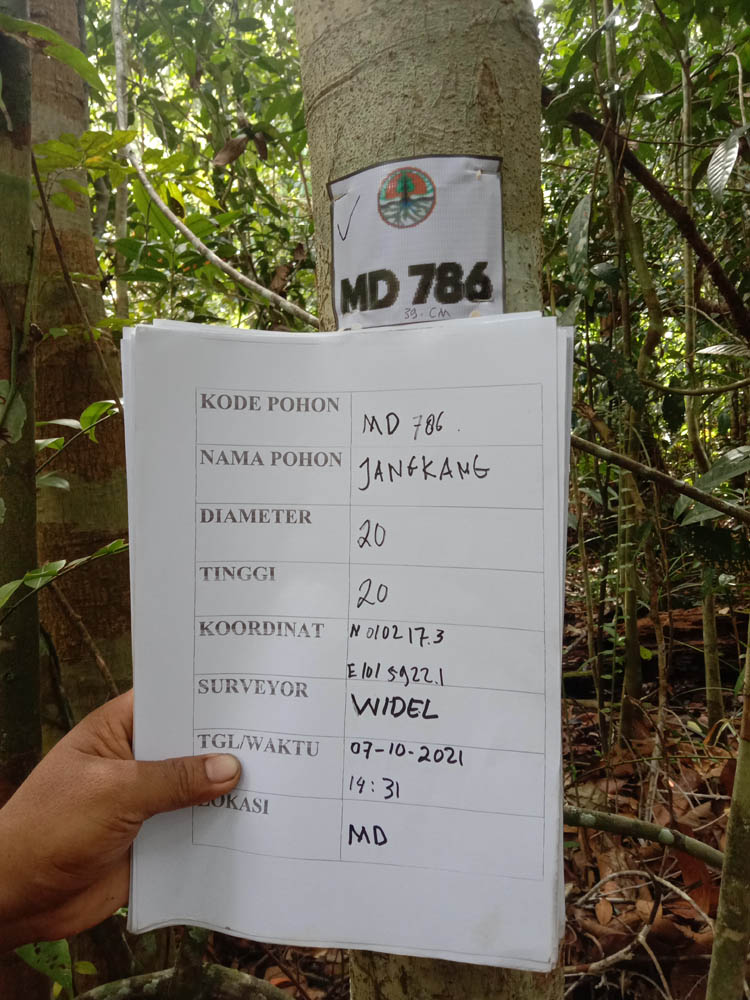 MD 786
39. CM
KODE POHON MD 786.
NAMA POHON JANGKANG
DIAMETER 20
TINGGI 20
KOORDINAT N 0102 17.3
E 101 5922.1
SURVEYOR WIDEL
TGL/WAKTU 07-10-2021
14:31
LOKASI MD